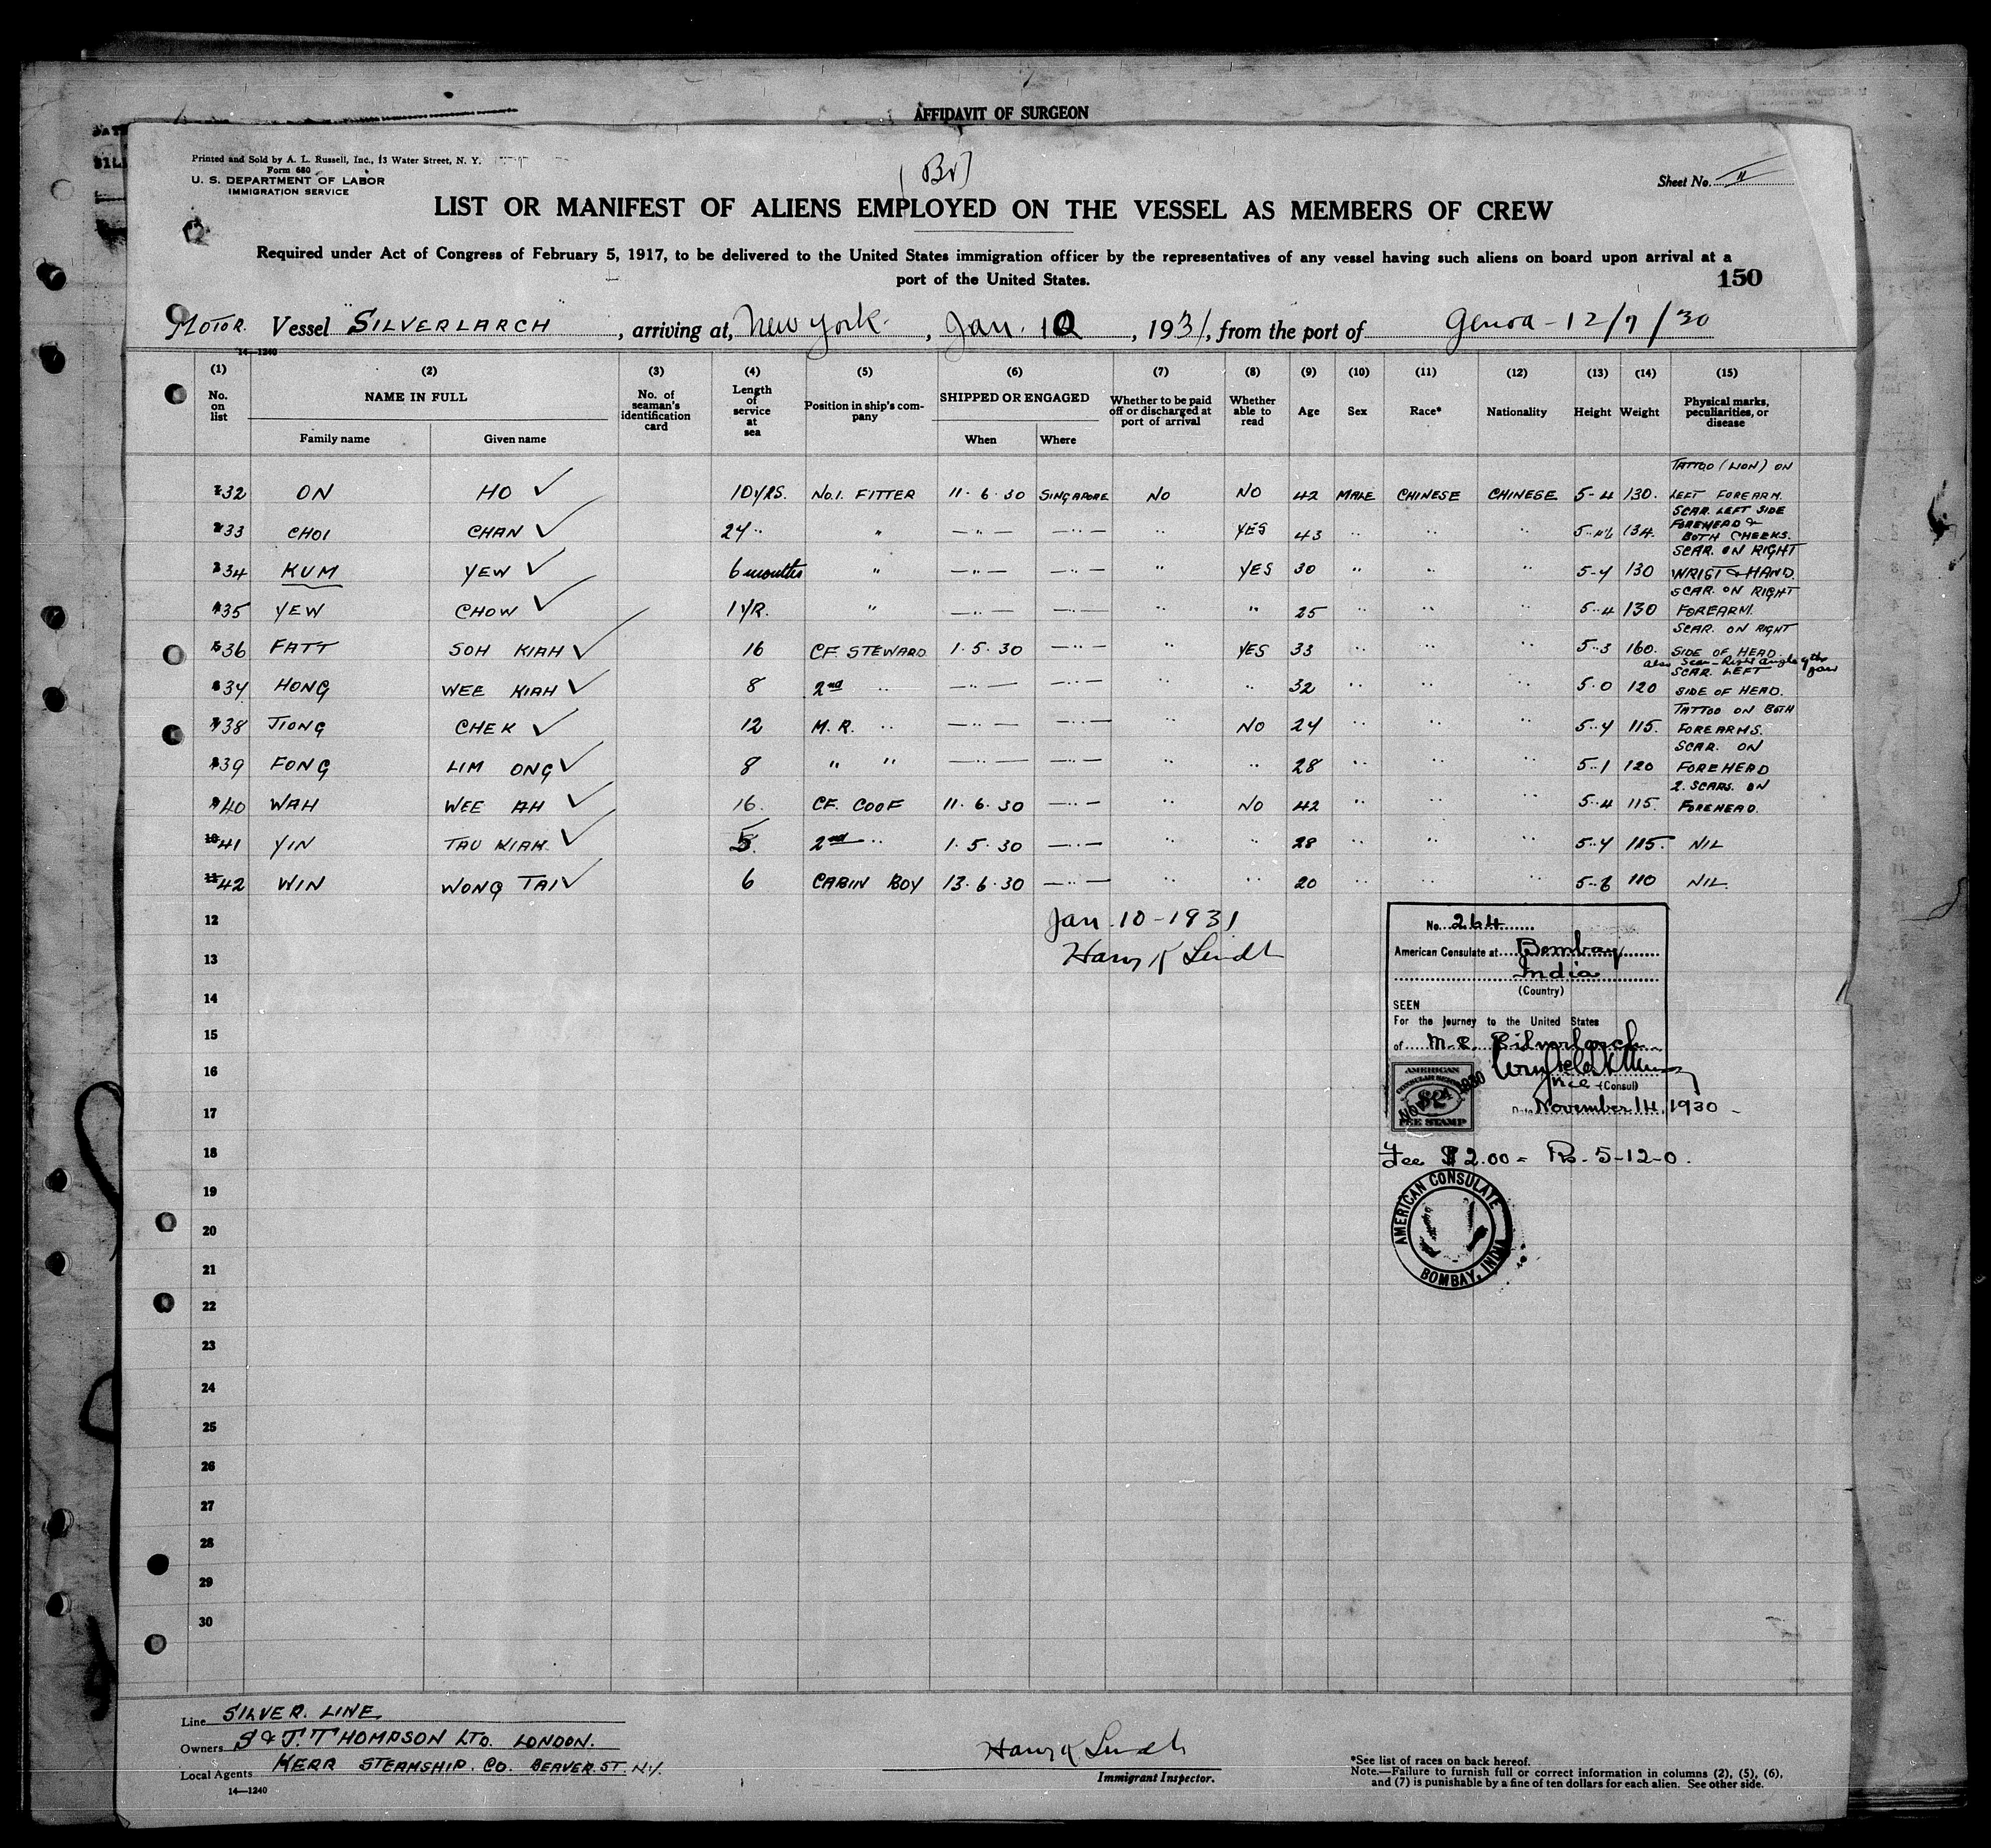 AFFIDAVIT OF SURGEON
Printed and Sold by A. L. Russell, Inc., 13 Water Street, N. Y.
Form 680
U. S. DEPARTMENT OF LABOR
IMMIGRATION SERVICE
(Br)
Sheet No. II
LIST OR MANIFEST OF ALIENS EMPLOYED ON THE VESSEL AS MEMBERS OF CREW
Required under Act of Congress of February 5, 1917, to be delivered to the United States immigration officer by the representatives of any vessel having such aliens on board upon arrival at a
port of the United States.
150
MOTOR. Vessel "SILVERLARCH", arriving at, New York, Jan. 10, 1931, from the port of Genoa - 12/7/30
14—1240
(1) (2) (3) (4) (5) (6) (7) (8) (9) (10) (11) (12) (13) (14) (15)
No. on list NAME IN FULL No. of seaman's identification card Length of service at sea Position in ship's company SHIPPED OR ENGAGED Whether to be paid off or discharged at port of arrival Whether able to read Age Sex Race* Nationality Height Weight Physical marks, peculiarities, or disease
Family name Given name When Where
32 ON HO ✓ 10 YRS. No.1. FITTER 11·6·30 SINGAPORE NO NO 42 MALE CHINESE CHINESE 5-4 130. TATTOO (LION) ON LEFT FOREARM.
33 CHOI CHAN ✓ 24 " " — " — — " — " YES 43 " " " 134. SCAR. LEFT SIDE FOREHEAD & BOTH CHEEKS.
34 KUM YEW ✓ 6 months " — " — — " — " YES 30 " " " 5-4 130 SCAR. ON RIGHT WRIST & HAND.
35 YEW CHOW ✓ 1 YR. " — " — — " — " " 25 " " " 5-4 130 SCAR. ON RIGHT FOREARM.
36 FATT SOH KIAH ✓ 16 CF. STEWARD 1·5·30 — " — " YES 33 " " " 5-3 160. SCAR. ON RIGHT SIDE OF HEAD. also Scar - Right angle of the jaw
37 HONG WEE KIAH ✓ 8 2nd " — " — — " — " " 32 " " " 5-0 120 SCAR. LEFT SIDE OF HEAD.
38 JIONG CHEK ✓ 12 M.R. " — " — — " — " NO 24 " " " 5-4 115. TATTOO ON BOTH FOREARMS.
39 FONG LIM ONG ✓ 8 " " — " — — " — " " 28 " " " 5-1 120 SCAR. ON FOREHEAD
40 WAH WEE AH ✓ 16. CF. COOF 11·6·30 — " — " NO 42 " " " 5-4 115. 2. SCARS. ON FOREHEAD.
41 YIN TAU KIAH ✓ 5 2nd " 1·5·30 — " — " " 28 " " " 5-4 115. NIL
42 WIN WONG TAI ✓ 6 CABIN BOY 13·6·30 — " — " " 20 " " " 5-6 110 NIL.
12
13
14
15
16
17
18
19
20
21
22
23
24
25
26
27
28
29
30
Jan. 10 - 1931
Harry K Lindt
No. 264
American Consulate at Bombay
India
(Country)
SEEN
For the journey to the United States
of M.S. Silverlarch
Vice (Consul)
AMERICAN
CONSULAR SERVICE
$2
NOV 14 1930
FEE STAMP
Date November 14, 1930
Fee $2.00 = Rs. 5-12-0.
AMERICAN CONSULATE
BOMBAY, INDIA
Line SILVER. LINE.
Owners S & J. THOMPSON LTD. LONDON.
Local Agents KERR STEAMSHIP. CO. BEAVER. ST. N.Y.
14—1240
Harry K. Lindt
Immigrant Inspector.
*See list of races on back hereof.
Note.—Failure to furnish full or correct information in columns (2), (5), (6),
and (7) is punishable by a fine of ten dollars for each alien. See other side.